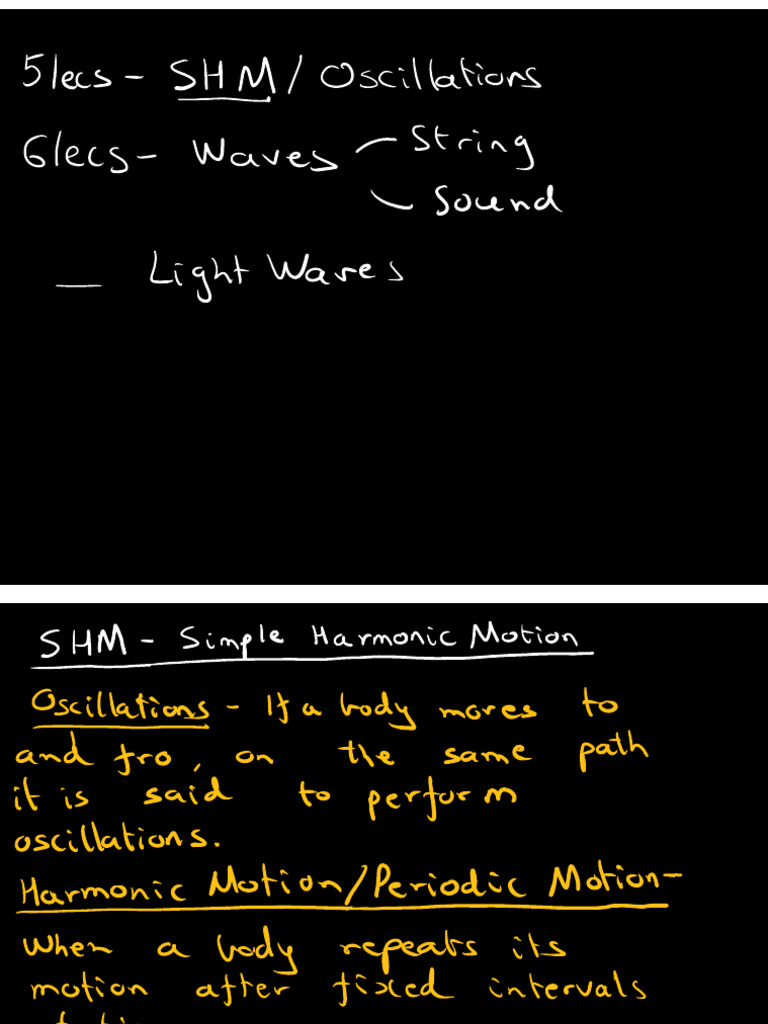 5lecs - SHM / Oscillations
6lecs - Waves - String
- Sound
— Light Waves
SHM - Simple Harmonic Motion
Oscillations - If a body moves to
and fro, on the same path
it is said to perform
oscillations.
Harmonic Motion/Periodic Motion-
When a body repeats its
motion after fixed intervals